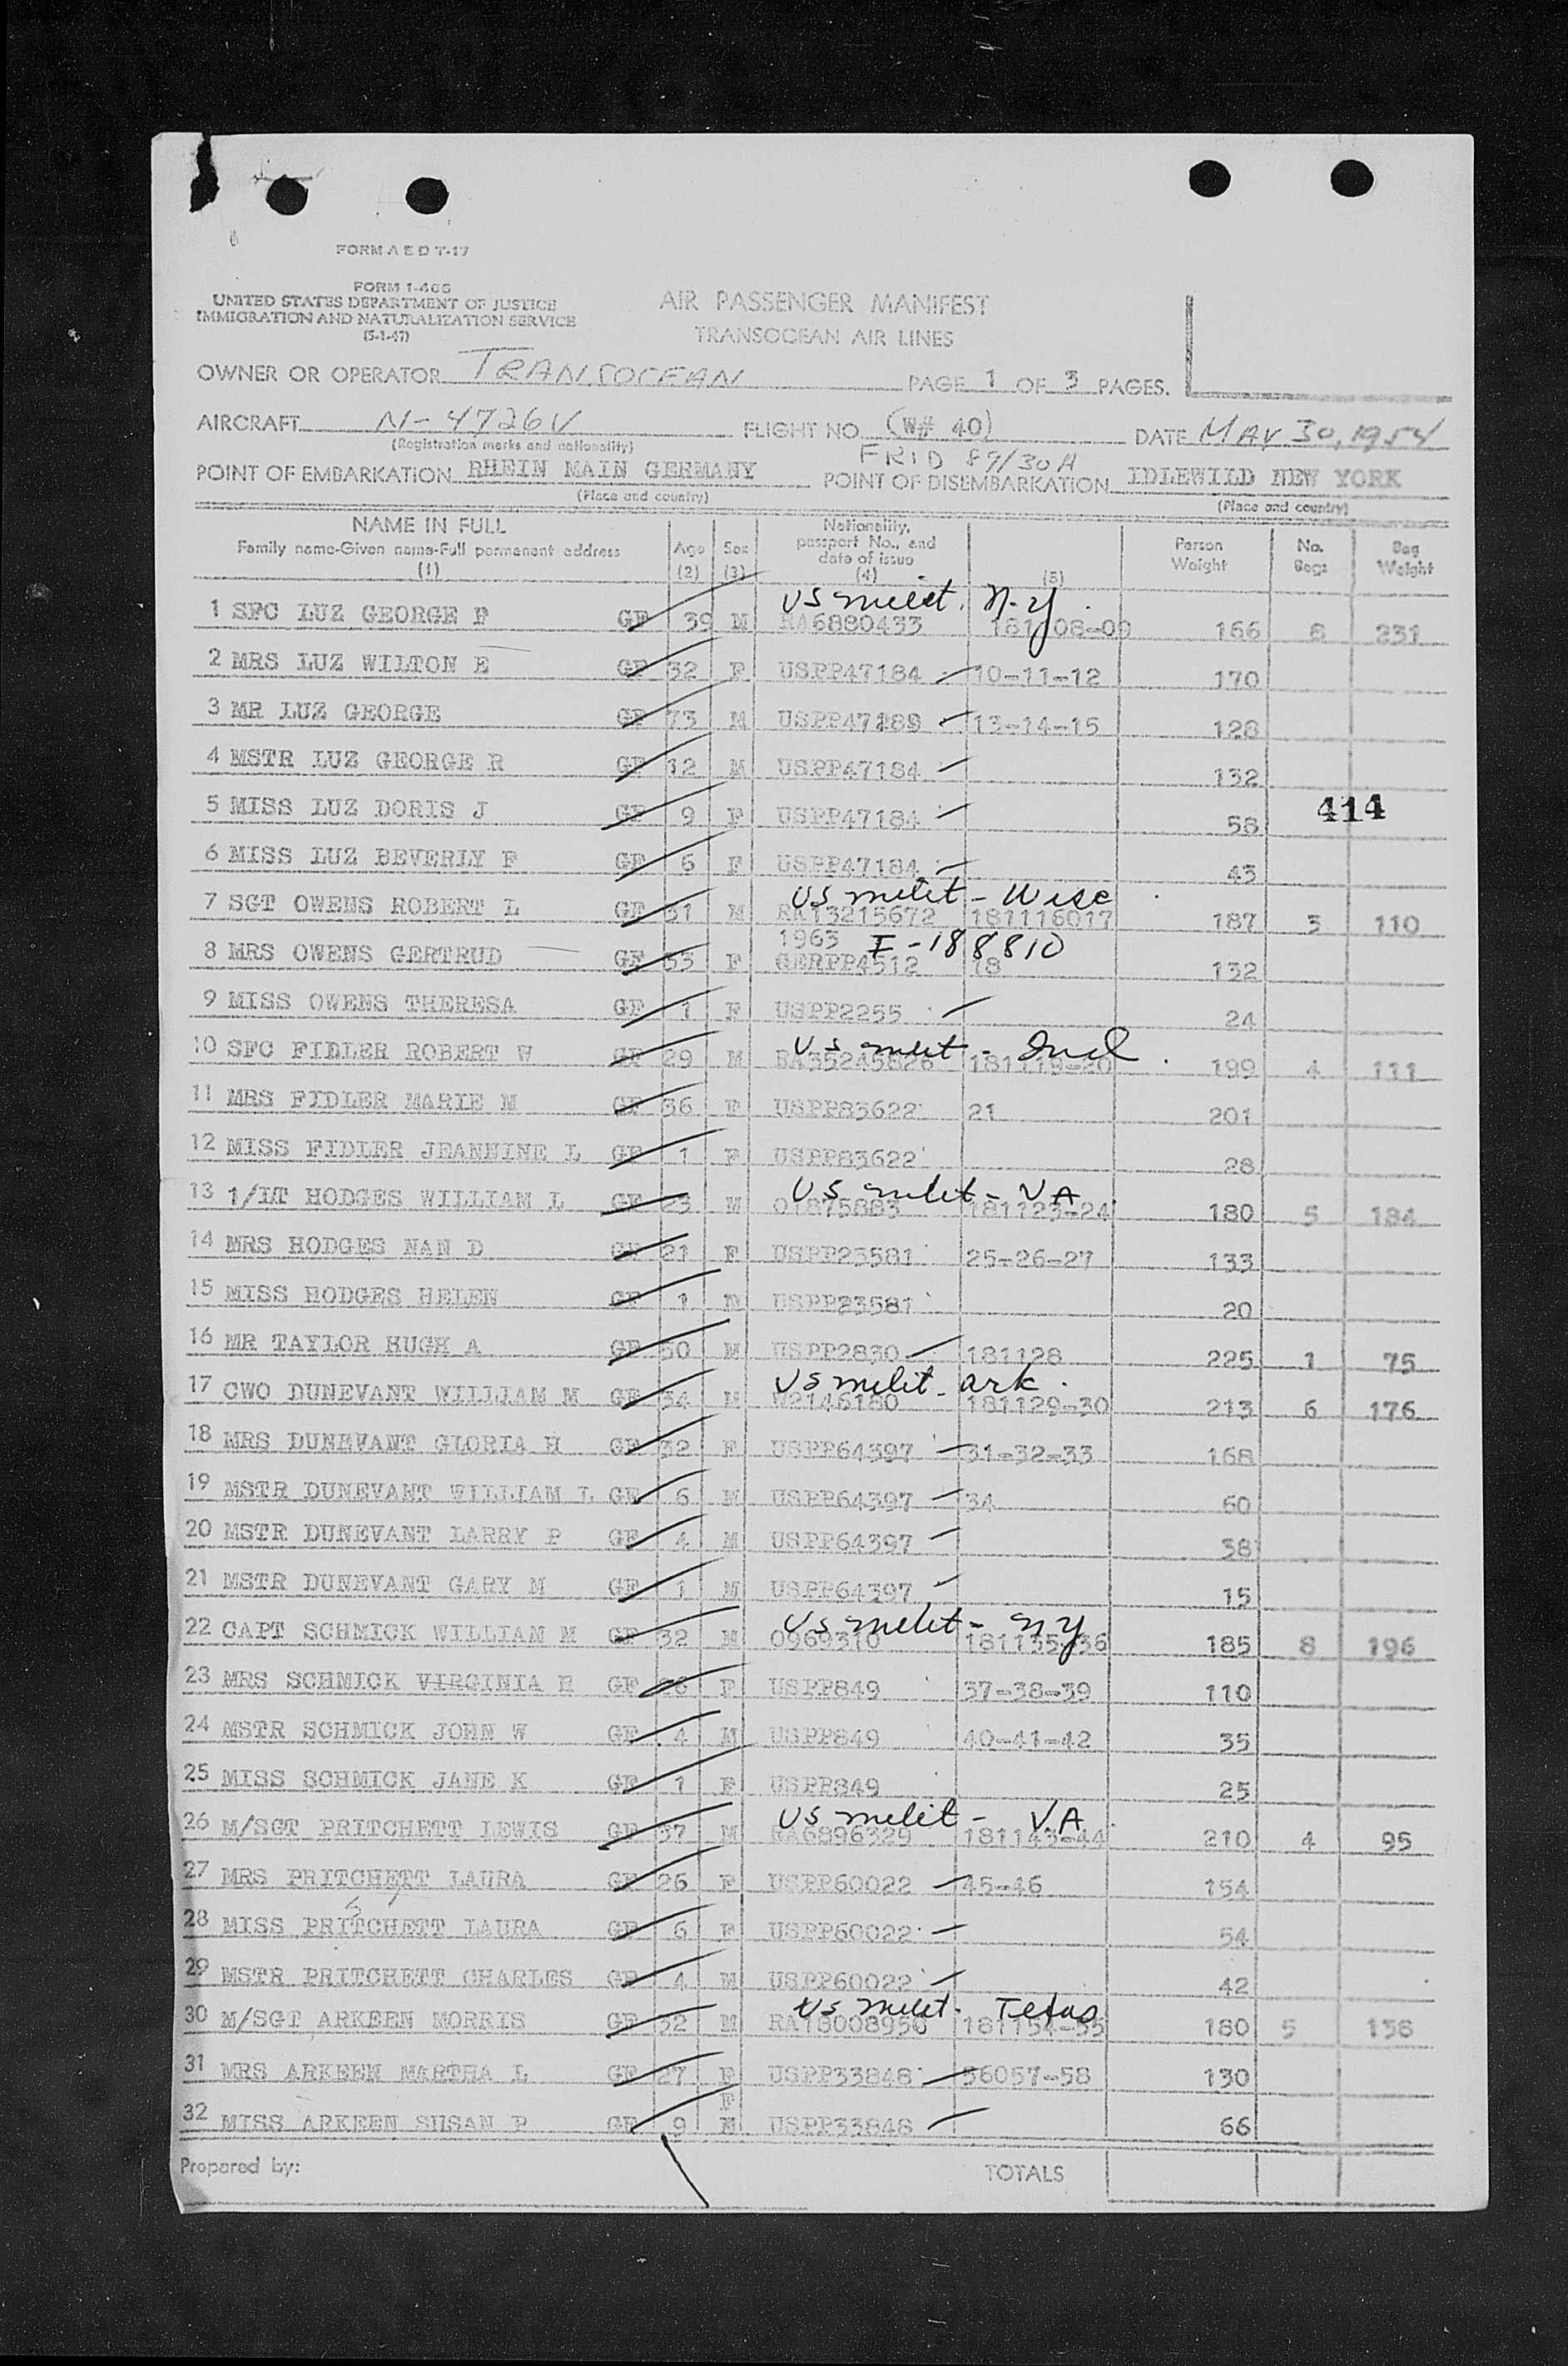 FORM A E D T-17
FORM I-466
UNITED STATES DEPARTMENT OF JUSTICE
IMMIGRATION AND NATURALIZATION SERVICE
(5-1-47)
AIR PASSENGER MANIFEST
TRANSOCEAN AIR LINES
OWNER OR OPERATOR TRANSOCEAN PAGE 1 OF 3 PAGES.
AIRCRAFT N-4726V FLIGHT NO (W# 40) DATE MAY 30, 1954
(Registration marks and nationality)
FRID 87/30A
POINT OF EMBARKATION RHEIN MAIN GERMANY POINT OF DISEMBARKATION IDLEWILD NEW YORK
(Place and country) (Place and country)
NAME IN FULL Family name-Given name-Full permanent address (1) Age (2) Sex (3) Nationality, passport No., and date of issue (4) (5) Person Weight No. Bags Bag Weight
US milit. N.Y.
1 SFC LUZ GEORGE F GF 39 M RA6880433 181108-09 166 8 231
2 MRS LUZ WILTON E GF 32 F USPP47184 10-11-12 170
3 MR LUZ GEORGE GF 73 M USPP47189 13-14-15 128
4 MSTR LUZ GEORGE R GF 12 M USPP47184 132
5 MISS LUZ DORIS J GF 9 F USPP47184 58
414
6 MISS LUZ BEVERLY F GF 6 F USPP47184 43
US milit - Wisc
7 SGT OWENS ROBERT L GF 31 M RA13215672 181116017 187 3 110
1963 I-188810
8 MRS OWENS GERTRUD GF 33 F GERPP4512 18 132
9 MISS OWENS THERESA GF 1 F USPP2255 24
US milit - Ind.
10 SFC FIDLER ROBERT W GF 29 M RA35245826 181119-20 199 4 111
11 MRS FIDLER MARIE M GF 36 F USPP83622 21 201
12 MISS FIDLER JEANNINE L GF 1 F USPP83622 28
US milit - VA
13 1/LT HODGES WILLIAM L GF 23 M O1875883 181123-24 180 5 184
14 MRS HODGES NAN D GF 21 F USPP23581 25-26-27 133
15 MISS HODGES HELEN GF 1 USPP23581 20
16 MR TAYLOR HUGH A GF 50 M USPP2830 181128 225 1 75
US milit - ark.
17 CWO DUNEVANT WILLIAM M GF 34 M W2146180 181129-30 213 6 176
18 MRS DUNEVANT GLORIA H GF 32 F USPP64397 31-32-33 168
19 MSTR DUNEVANT WILLIAM L GF 6 M USPP64397 34 60
20 MSTR DUNEVANT LARRY P GF 4 M USPP64397 38
21 MSTR DUNEVANT GARY M GF 1 M USPP64397 15
US milit - NY
22 CAPT SCHMICK WILLIAM M GF 32 M O969310 181135-36 185 8 196
23 MRS SCHMICK VIRGINIA H GF 26 F USPP849 37-38-39 110
24 MSTR SCHMICK JOHN W GF 4 M USPP849 40-41-42 35
25 MISS SCHMICK JANE K GF 1 F USPP849 25
US milit - VA
26 M/SGT PRITCHETT LEWIS GF 37 M RA6896329 181143-44 210 4 95
27 MRS PRITCHETT LAURA GF 26 F USPP60022 45-46 154
28 MISS PRITCHETT LAURA GF 6 F USPP60022 54
29 MSTR PRITCHETT CHARLES GF 4 M USPP60022 42
US milit - Texas
30 M/SGT ARKEEN MORRIS GF 32 M RA18008950 181154-55 180 5 138
31 MRS ARKEEN MARTHA L GF 27 F USPP33848 56057-58 130
F
32 MISS ARKEEN SUSAN P GF 9 M USPP33848 66
Prepared by: TOTALS